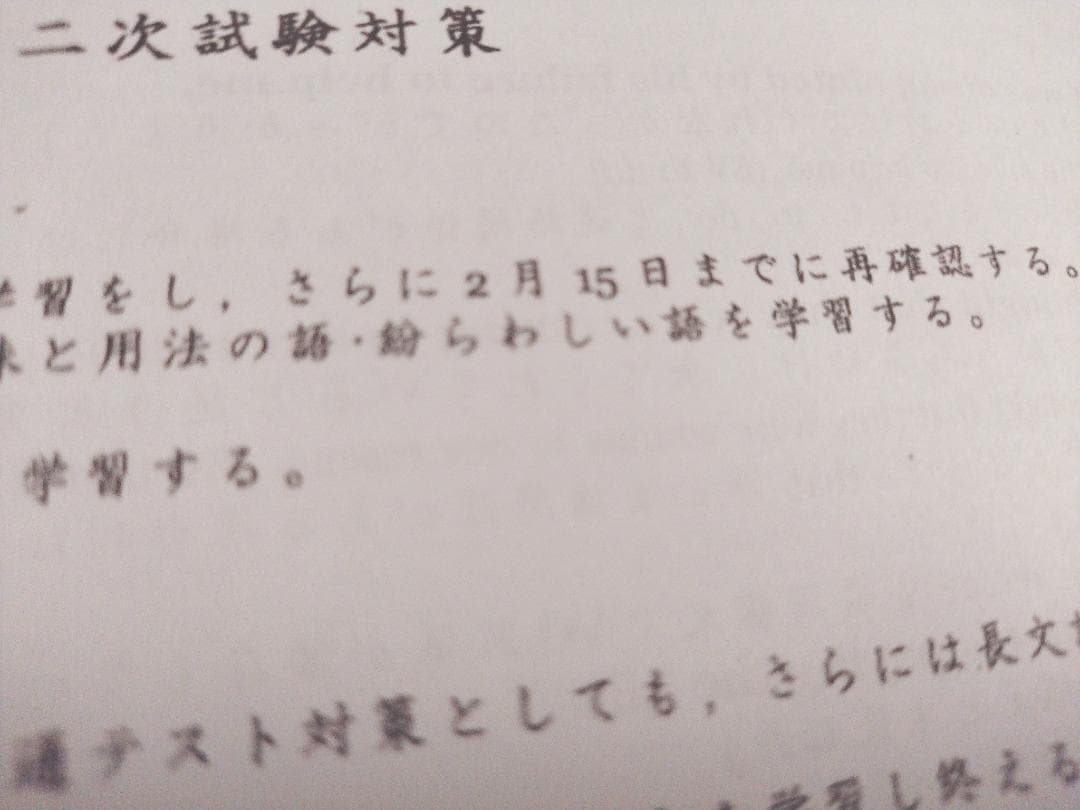 二次試験対策
学習をし，さらに2月15日までに再確認する。
と用法の語・紛らわしい語を学習する。
学習する。
通テスト対策としても，さらには長文
学習し終える